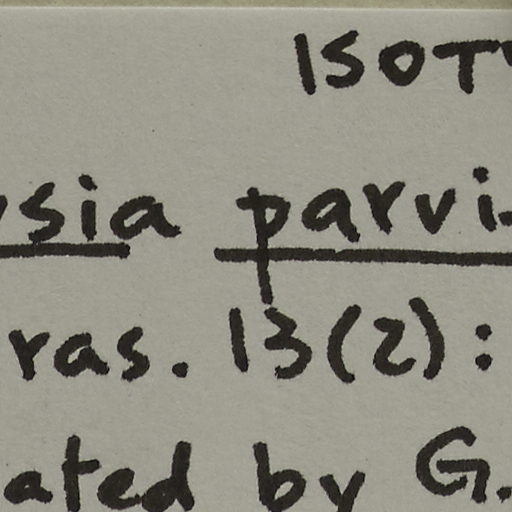 ISOTY
ysia parvi-
ras. 13(2):
ated by G.